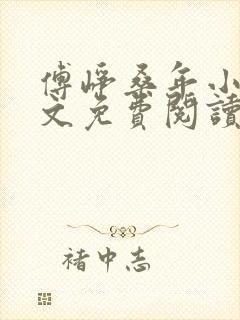 傅崢桑年小
文免費閱讀
褚中志